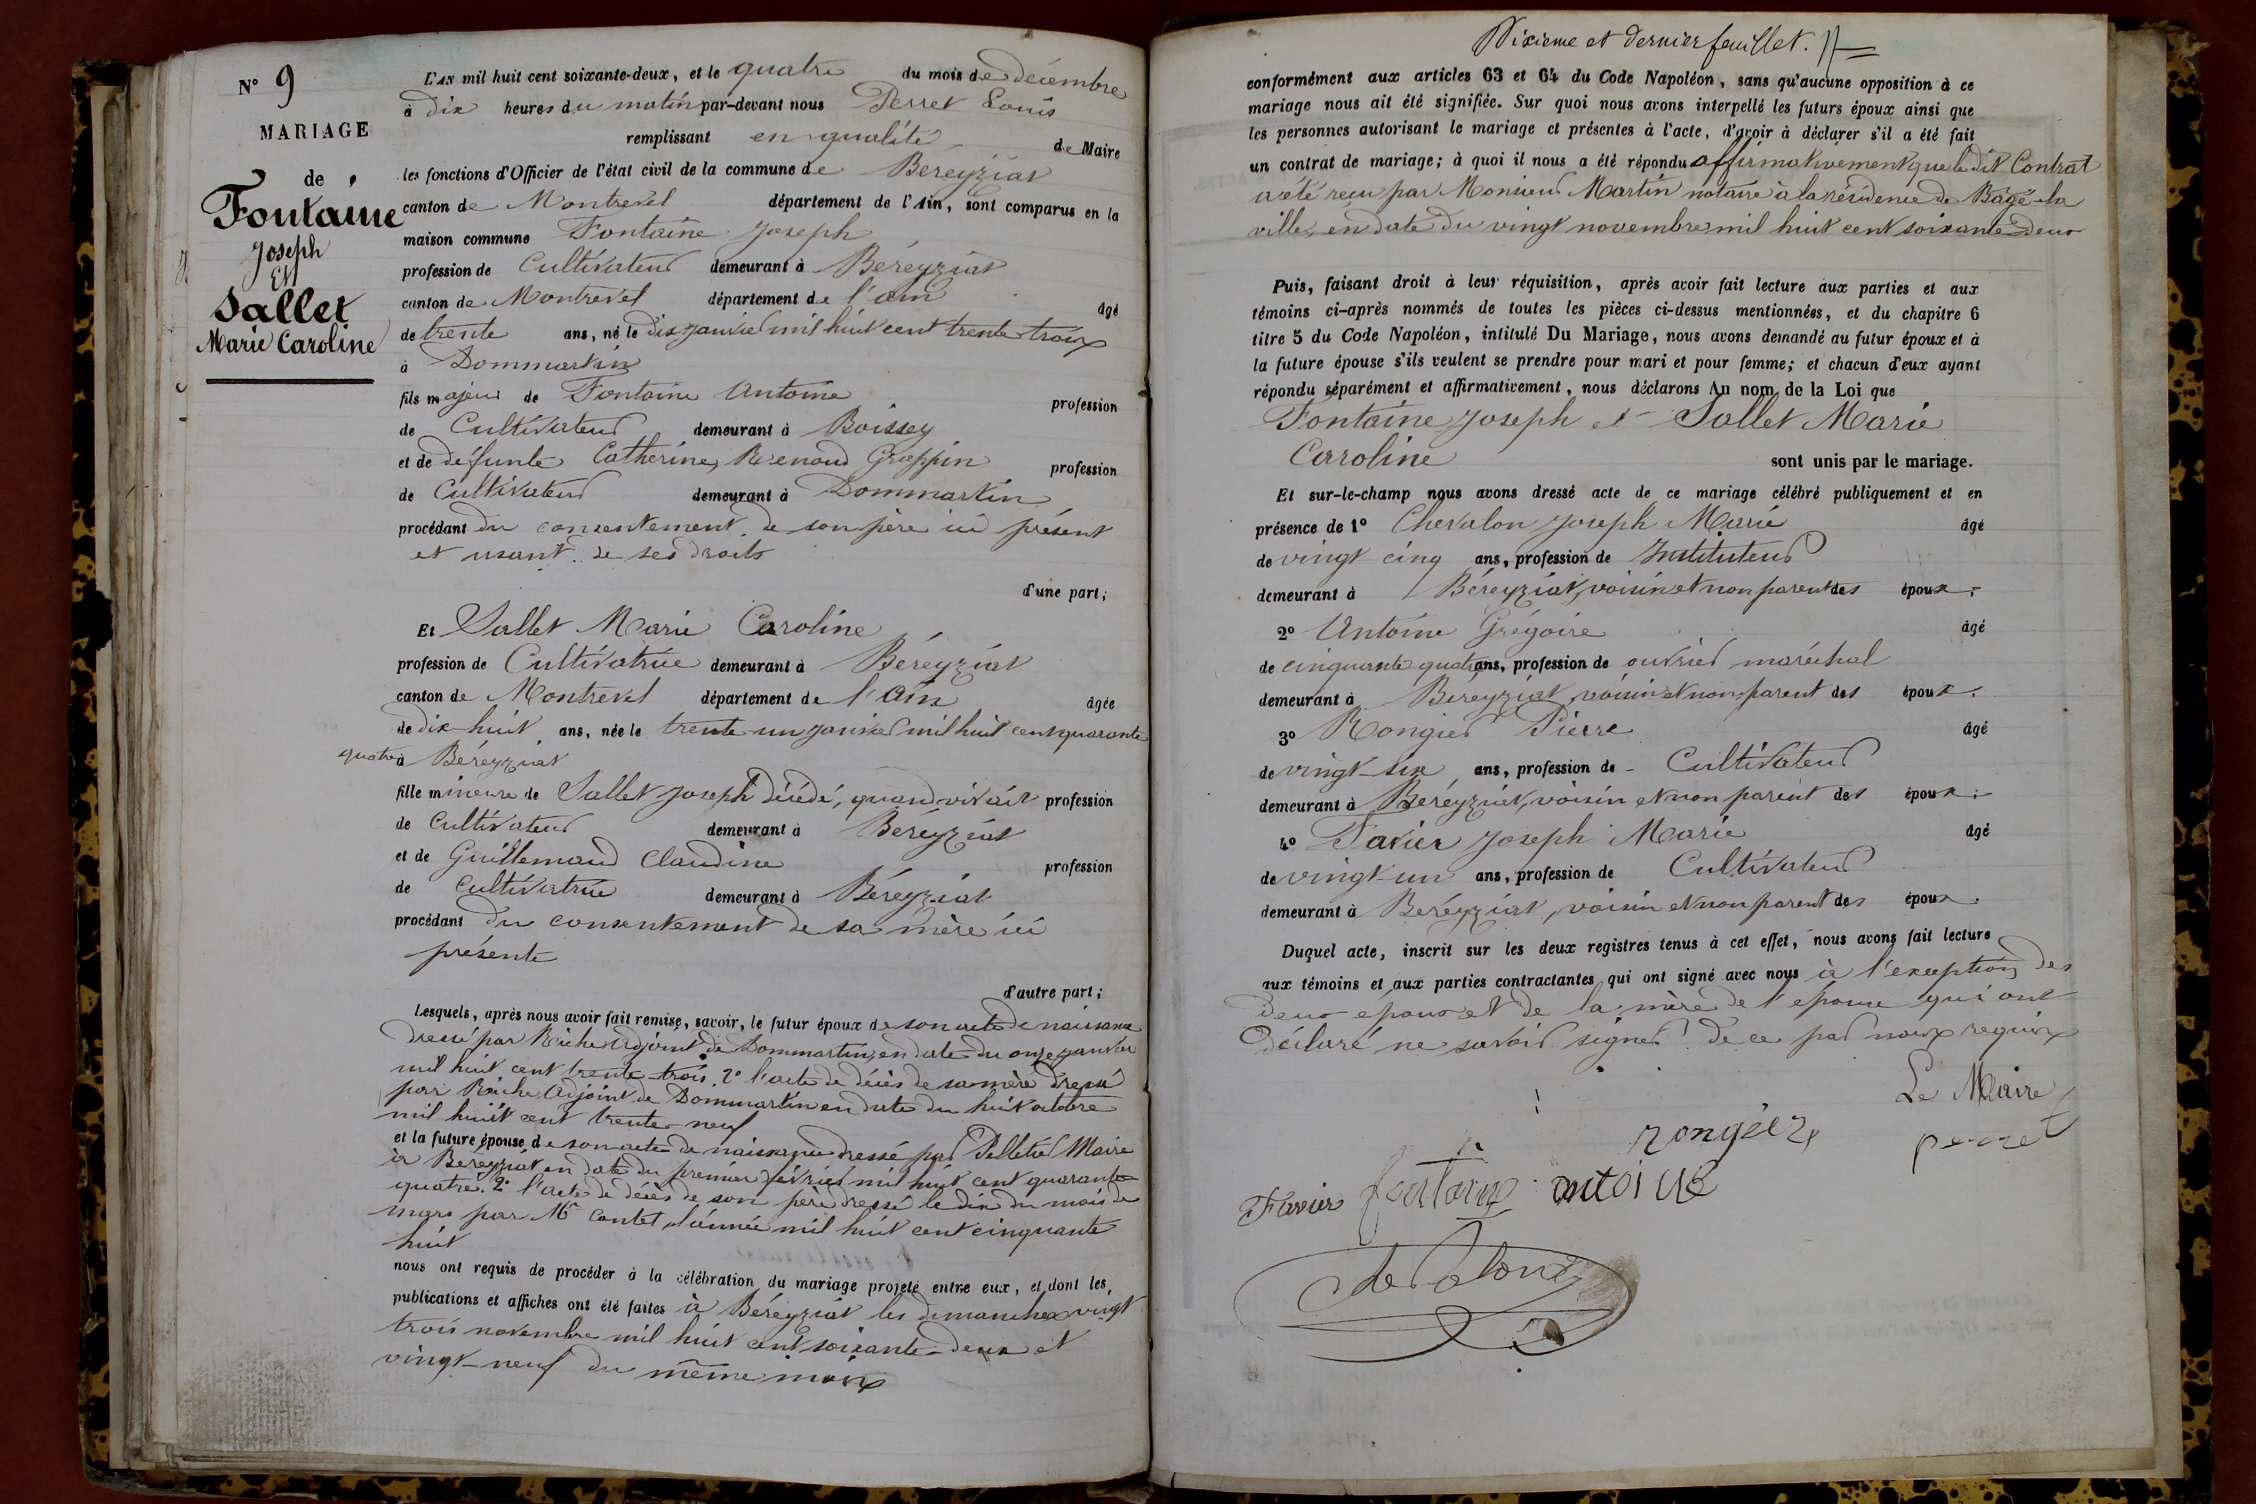 N° 9
MARIAGE
de
Fontaine
Joseph
Et
Sallet
Marie Caroline
L'AN mil huit cent soixante-deux, et le quatre du mois de décembre
à dix heures du matin par-devant nous Perret Louis
remplissant en qualité de Maire
les fonctions d'Officier de l'état civil de la commune de Béréyziat
canton de Montrevel département de l'Ain, sont comparus en la
maison commune Fontaine Joseph
profession de Cultivateur demeurant à Béréyziat
canton de Montrevel département de l'ain âgé
de trente ans, né le dix janvier mil huit cent trente trois
à Dommartin
fils majeur de Fontaine Antoine profession
de Cultivateur demeurant à Boissey
et de défunte Catherine Renoud Grappin profession
de Cultivateur demeurant à Dommartin
procédant du consentement de son père ici présent
et usant de ses droits
d'une part;
Et Sallet Marie Caroline
profession de Cultivatrice demeurant à Béréyziat
canton de Montrevel département de l'Ain âgée
de dix-huit ans, née le trente un janvier mil huit cent quarante
quatre à Béréyziat
fille mineure de Sallet Joseph décédé, quand vivait profession
de Cultivateur demeurant à Béréyziat
et de Guillemaud Claudine profession
de Cultivatrice demeurant à Béréyziat
procédant du consentement de sa mère ici
présente
d'autre part;
Lesquels, après nous avoir fait remise, savoir, le futur époux de son acte de naissance
dressé par Riche Adjoint de Dommartin, en date du onze janvier
mil huit cent trente-trois. 2° l'acte de décès de sa mère dressé
par Riche Adjoint de Dommartin en date du huit octobre
mil huit cent trente-neuf
et la future épouse de son acte de naissance dressé par Pelletier Maire
à Béréyziat en date du premier février mil huit cent quarante
quatre. 2° l'acte de décès de son père dressé le dix du mois de
mars par Mr Contet, l'année mil huit cent cinquante
huit
nous ont requis de procéder à la célébration du mariage projeté entre eux, et dont les
publications et affiches ont été faites à Béréyziat les dimanches vingt
trois novembre mil huit cent soixante-deux et
vingt-neuf du même mois
Dixième et dernier feuillet.
conformément aux articles 63 et 64 du Code Napoléon, sans qu'aucune opposition à ce
mariage nous ait été signifiée. Sur quoi nous avons interpellé les futurs époux ainsi que
les personnes autorisant le mariage et présentes à l'acte, d'avoir à déclarer s'il a été fait
un contrat de mariage; à quoi il nous a été répondu affirmativement que le dit Contrat
a été reçu par Monsieur Martin notaire à la résidence de Bâgé-la
ville, en date du vingt novembre mil huit cent soixante-deux
Puis, faisant droit à leur réquisition, après avoir fait lecture aux parties et aux
témoins ci-après nommés de toutes les pièces ci-dessus mentionnées, et du chapitre 6
titre 5 du Code Napoléon, intitulé Du Mariage, nous avons demandé au futur époux et à
la future épouse s'ils veulent se prendre pour mari et pour femme; et chacun d'eux ayant
répondu séparément et affirmativement, nous déclarons Au nom de la Loi que
Fontaine Joseph et Sallet Marie
Caroline sont unis par le mariage.
Et sur-le-champ nous avons dressé acte de ce mariage célébré publiquement et en
présence de 1° Chevalon Joseph Marie âgé
de vingt cinq ans, profession de Instituteur
demeurant à Béréyziat, voisin et non parent des époux;
2° Antoine Grégoire âgé
de cinquante quatre ans, profession de ouvrier maréchal
demeurant à Béréyziat, voisin et non parent des époux.
3° Rongier Pierre âgé
de vingt-six ans, profession de Cultivateur
demeurant à Béréyziat, voisin et non parent des époux;
4° Favier Joseph Marie âgé
de vingt-un ans, profession de Cultivateur
demeurant à Béréyziat, voisin et non parent des époux.
Duquel acte, inscrit sur les deux registres tenus à cet effet, nous avons fait lecture
aux témoins et aux parties contractantes qui ont signé avec nous à l'exception des
deux époux et de la mère de l'épouse qui ont
déclaré ne savoir signer de ce par nous requis
Le Maire
rongier perret
Favier fontaine antoine